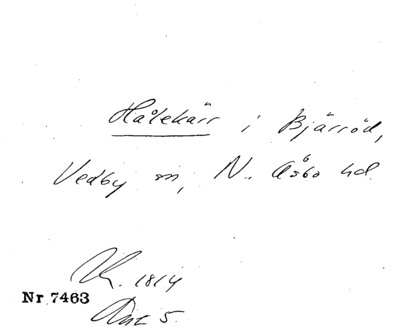 Hålekärr i Bjärröd,
Vedby sn, N. Åsbo hd.
K. 1814
Nr 7463